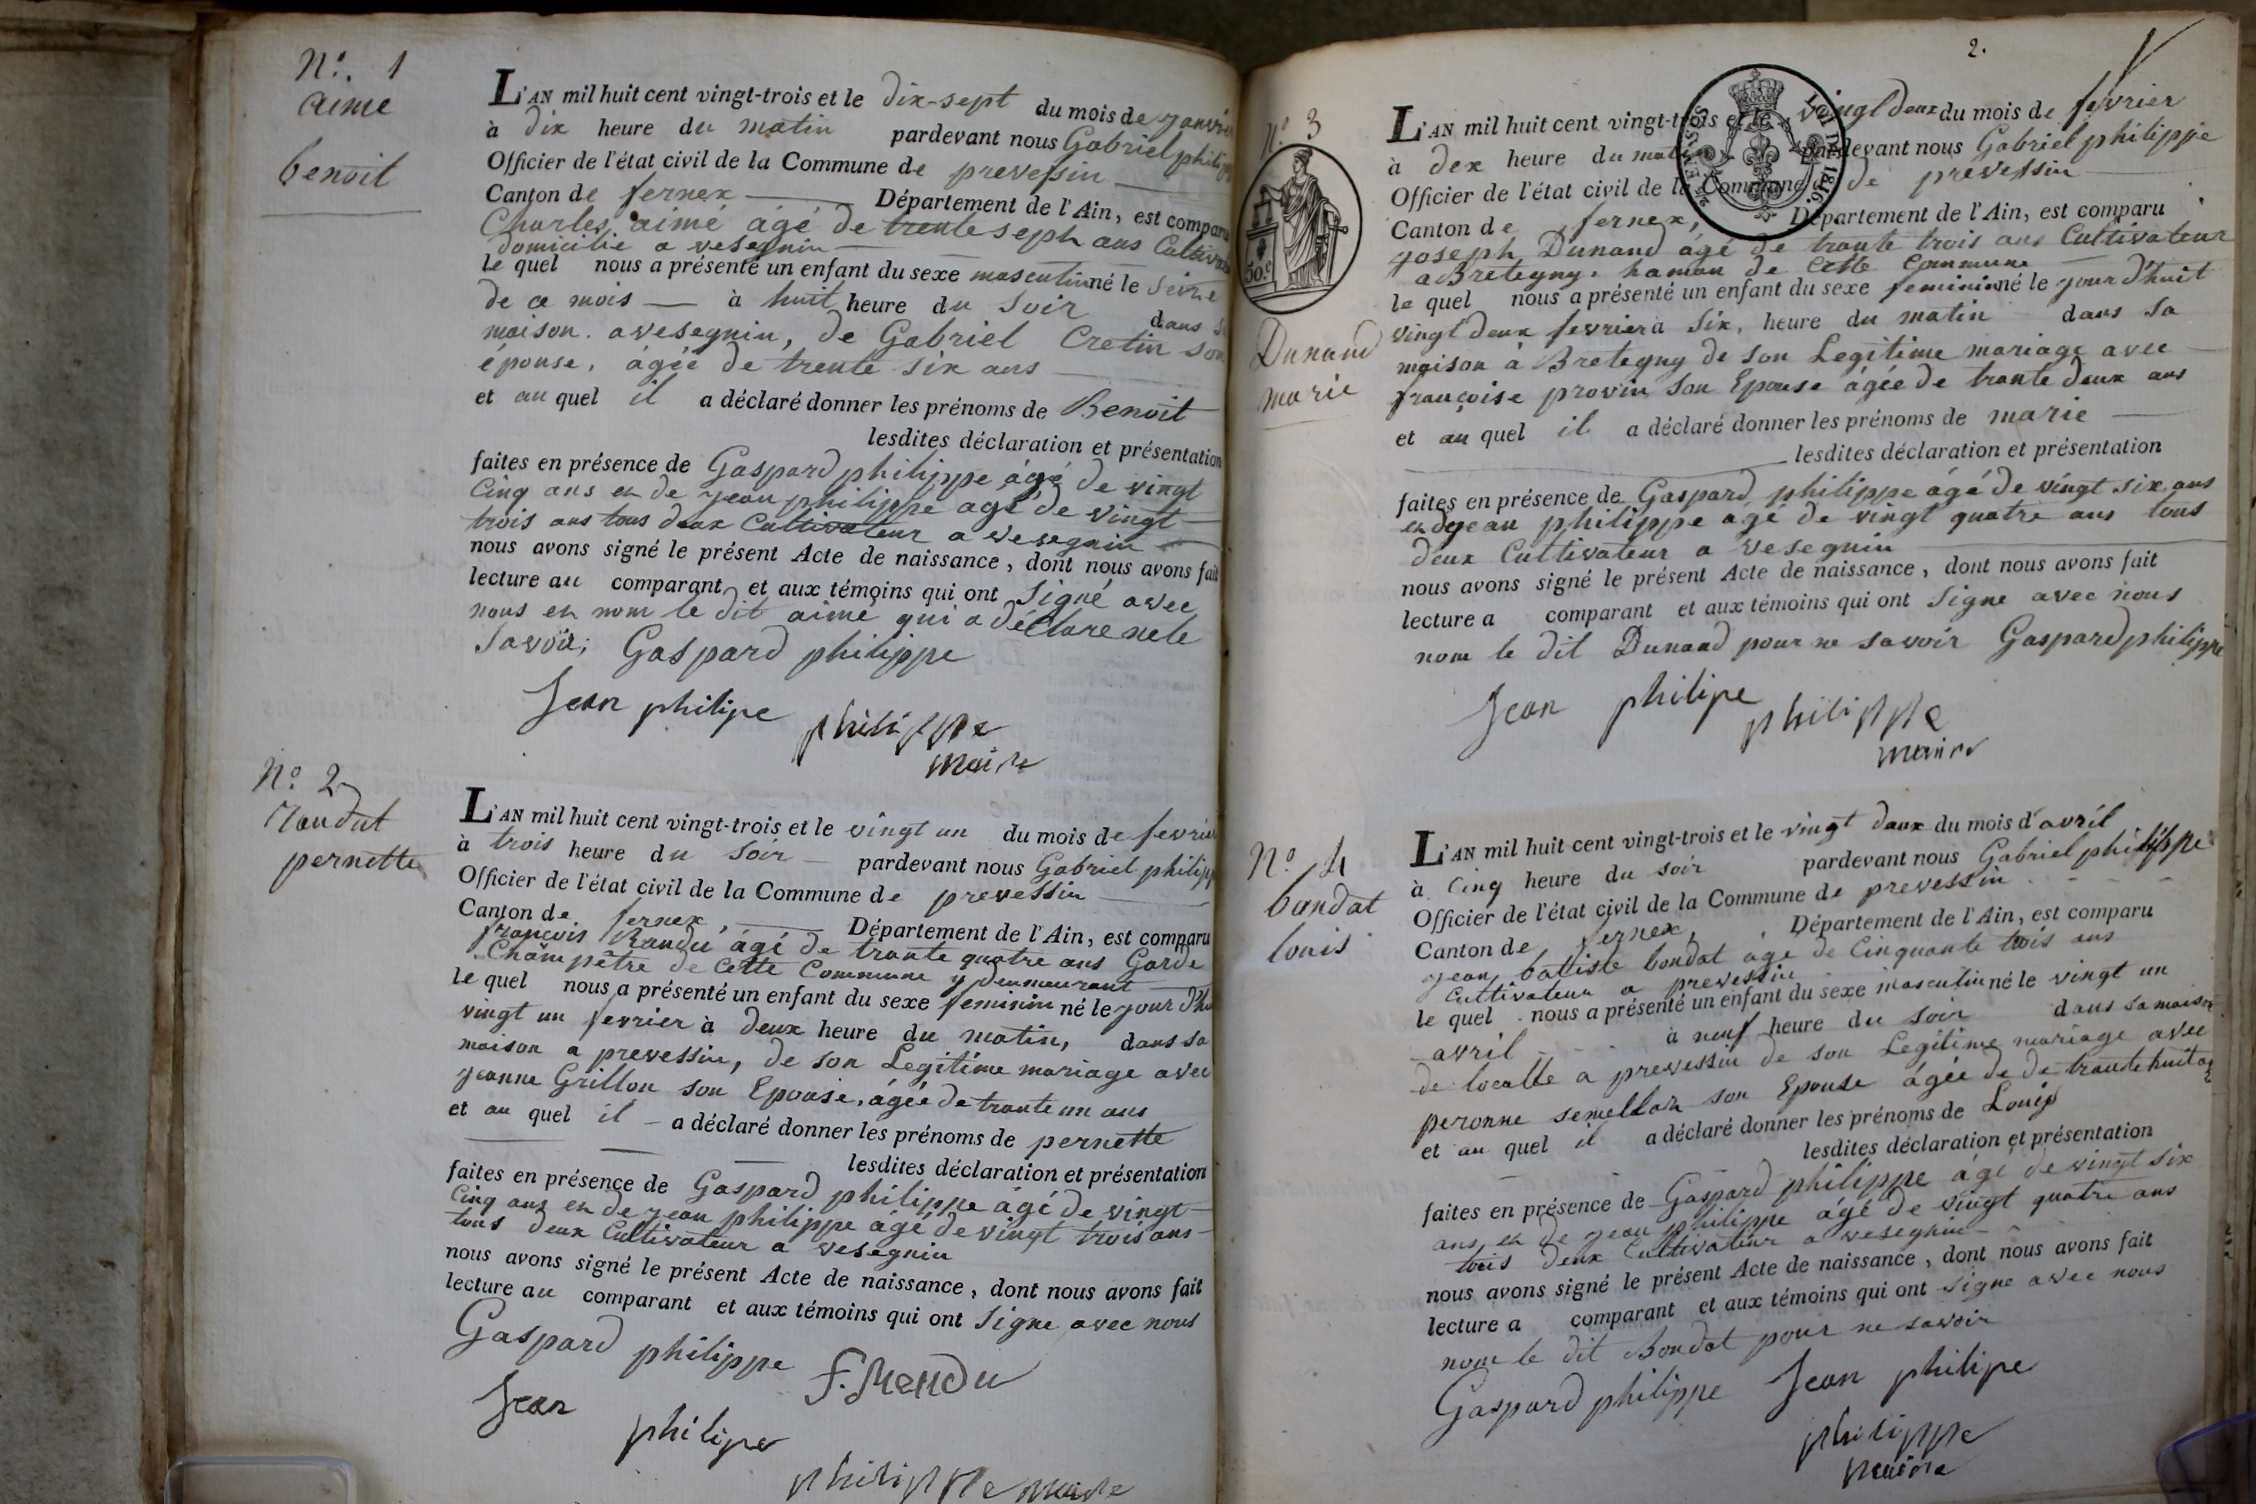 N.º 1
aimé
benoit
L'AN mil huit cent vingt-trois et le dix-sept du mois de janvier
à dix heure du matin pardevant nous Gabriel philippe
Officier de l'état civil de la Commune de prevessin
Canton de fernex Département de l'Ain, est comparu
Charles aimé âgé de trente seph ans Cultivateur
domicilié a vesegnin
le quel nous a présenté un enfant du sexe masculin né le seize
de ce mois à huit heure du soir dans sa
maison a vesegnin, de Gabriel Cretin son
épouse, âgée de trente six ans
et au quel il a déclaré donner les prénoms de Benoit
lesdites déclaration et présentation
faites en présence de Gaspard philippe âgé de vingt
Cinq ans en de jean philippe agé de vingt
trois ans tous deux Cultivateur a vesegnin
nous avons signé le présent Acte de naissance, dont nous avons fait
lecture au comparant et aux témoins qui ont Signé avec
nous en nom le dit aimé qui a déclaré ne le
Savoir; Gaspard philippe
Jean philipe philippe
maire
N.º 2
pernette
L'AN mil huit cent vingt-trois et le vingt un du mois de fevrier
à trois heure du Soir pardevant nous Gabriel philippe
Officier de l'état civil de la Commune de prevessin
Canton de fernex, Département de l'Ain, est comparu
françois Randu âgé de trante quatre ans Garde
Champêtre de Cette Commune y demeurant
le quel nous a présenté un enfant du sexe feminin né le jour d'hui
vingt un fevrier à deux heure du matin, dans sa
maison a prevessin, de son Legitime mariage avec
jeanne Grillon son Epouse, âgée de trante un ans
et au quel il a déclaré donner les prénoms de pernette
lesdites déclaration et présentation
faites en présence de Gaspard philippe âgé de vingt
Cinq ans en de jean philippe âgé de vingt trois ans
tous deux Cultivateur a vesegnin
nous avons signé le présent Acte de naissance, dont nous avons fait
lecture au comparant et aux témoins qui ont Signe avec nous
Gaspard philippe
Jean philipe
philippe maire
2.
N.º 3
50.c
LOI DE 1816.
Dunand
marie
L'AN mil huit cent vingt-trois et le vingt deux du mois de fevrier
à dex heure du matin pardevant nous Gabriel philippe
Officier de l'état civil de la Commune de prevessin
Canton de fernex, Département de l'Ain, est comparu
joseph Dunand âgé de trante trois ans Cultivateur
a Bretegny. hamau de Cette Commune
le quel nous a présenté un enfant du sexe feminin né le jour d'huit
vingt deux fevrier a Six, heure du matin dans sa
maison à Bretegny de son Legitime mariage avec
françoise provin son Epouse âgée de trante deux ans
et au quel il a déclaré donner les prénoms de marie
lesdites déclaration et présentation
faites en présence de Gaspard philippe âgé de vingt six ans
en de jean philippe agé de vingt quatre ans tous
deux Cultivateur a vesegnin
nous avons signé le présent Acte de naissance, dont nous avons fait
lecture a comparant et aux témoins qui ont Signe avec nous
nom le dit Dunand pour ne savoir Gaspard philippe
Jean philipe philippe
maire
N.º 4
bondat
louis
L'AN mil huit cent vingt-trois et le vingt deux du mois d'avril
à Cinq heure du soir pardevant nous Gabriel philippe
Officier de l'état civil de la Commune de prevessin
Canton de fernex, Département de l'Ain, est comparu
jean batiste bondat agé de Cinquante trois ans
Cultivateur a prevessin
le quel nous a présenté un enfant du sexe masculin né le vingt un
avril à neuf heure du soir dans sa maison
de localle a prevessin de son Legitime mariage avec
peronne semellon son Epouse âgée de de trante huit ans
et au quel il a déclaré donner les prénoms de Louis
lesdites déclaration et présentation
faites en présence de Gaspard philippe âgé de vingt six
ans en de jean philippe âgé de vingt quatre ans
tous deux Cultivateur a vesegnin
nous avons signé le présent Acte de naissance, dont nous avons fait
lecture a comparant et aux témoins qui ont signe avec nous
nom le dit Bondat pour ne savoir
Gaspard philippe Jean philipe
philippe
maire